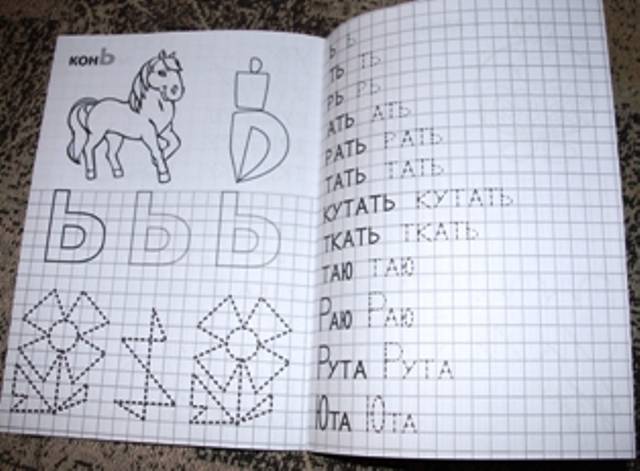 конЬ
Ь Ь Ь
Ь Ь
ТЬ ТЬ
РЬ РЬ
АТЬ АТЬ
РАТЬ РАТЬ
ТАТЬ ТАТЬ
КУТАТЬ КУТАТЬ
ТКАТЬ ТКАТЬ
ТАЮ ТАЮ
РАЮ РАЮ
РУТА РУТА
ЮТА ЮТА